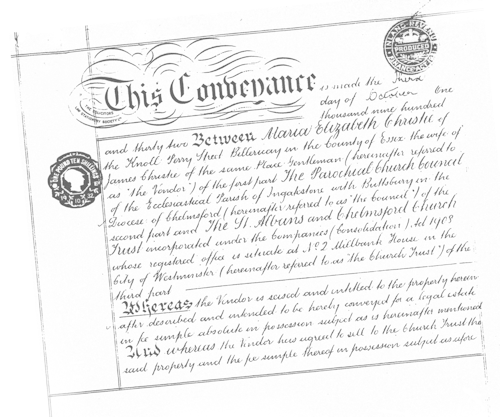 INLAND REVENUE
PRODUCED
FINANCE ACT
This Conveyance is made the third
day of October One
thousand nine hundred
and thirty two Between Maria Elizabeth Christie of
the Knoll Perry Street Billericay in the County of Essex the wife of
James Christie of the same place Gentleman (hereinafter refered to
as "the Vendor") of the first part The Parochial Church Council
of the Ecclesiastical Parish of Ingatestone with Buttsbury in the
Diocese of Chelmsford (hereinafter refered to as "the Council") of the
second part and The St. Albans and Chelmsford Church
Trust incorporated under the Companies (Consolidation) Act 1908
whose registered office is situate at No 2 Millbank House in the
City of Westminster (hereinafter refered to as "the Church Trust") of the
third part
Whereas the Vendor is seised and entitled to the property herein
after described and intended to be hereby conveyed for a legal estate
in fee simple absolute in possession subject as is hereinafter mentioned
And whereas the Vendor has agreed to sell to the Church Trust the
said property and the fee simple thereof in possession subject as afore